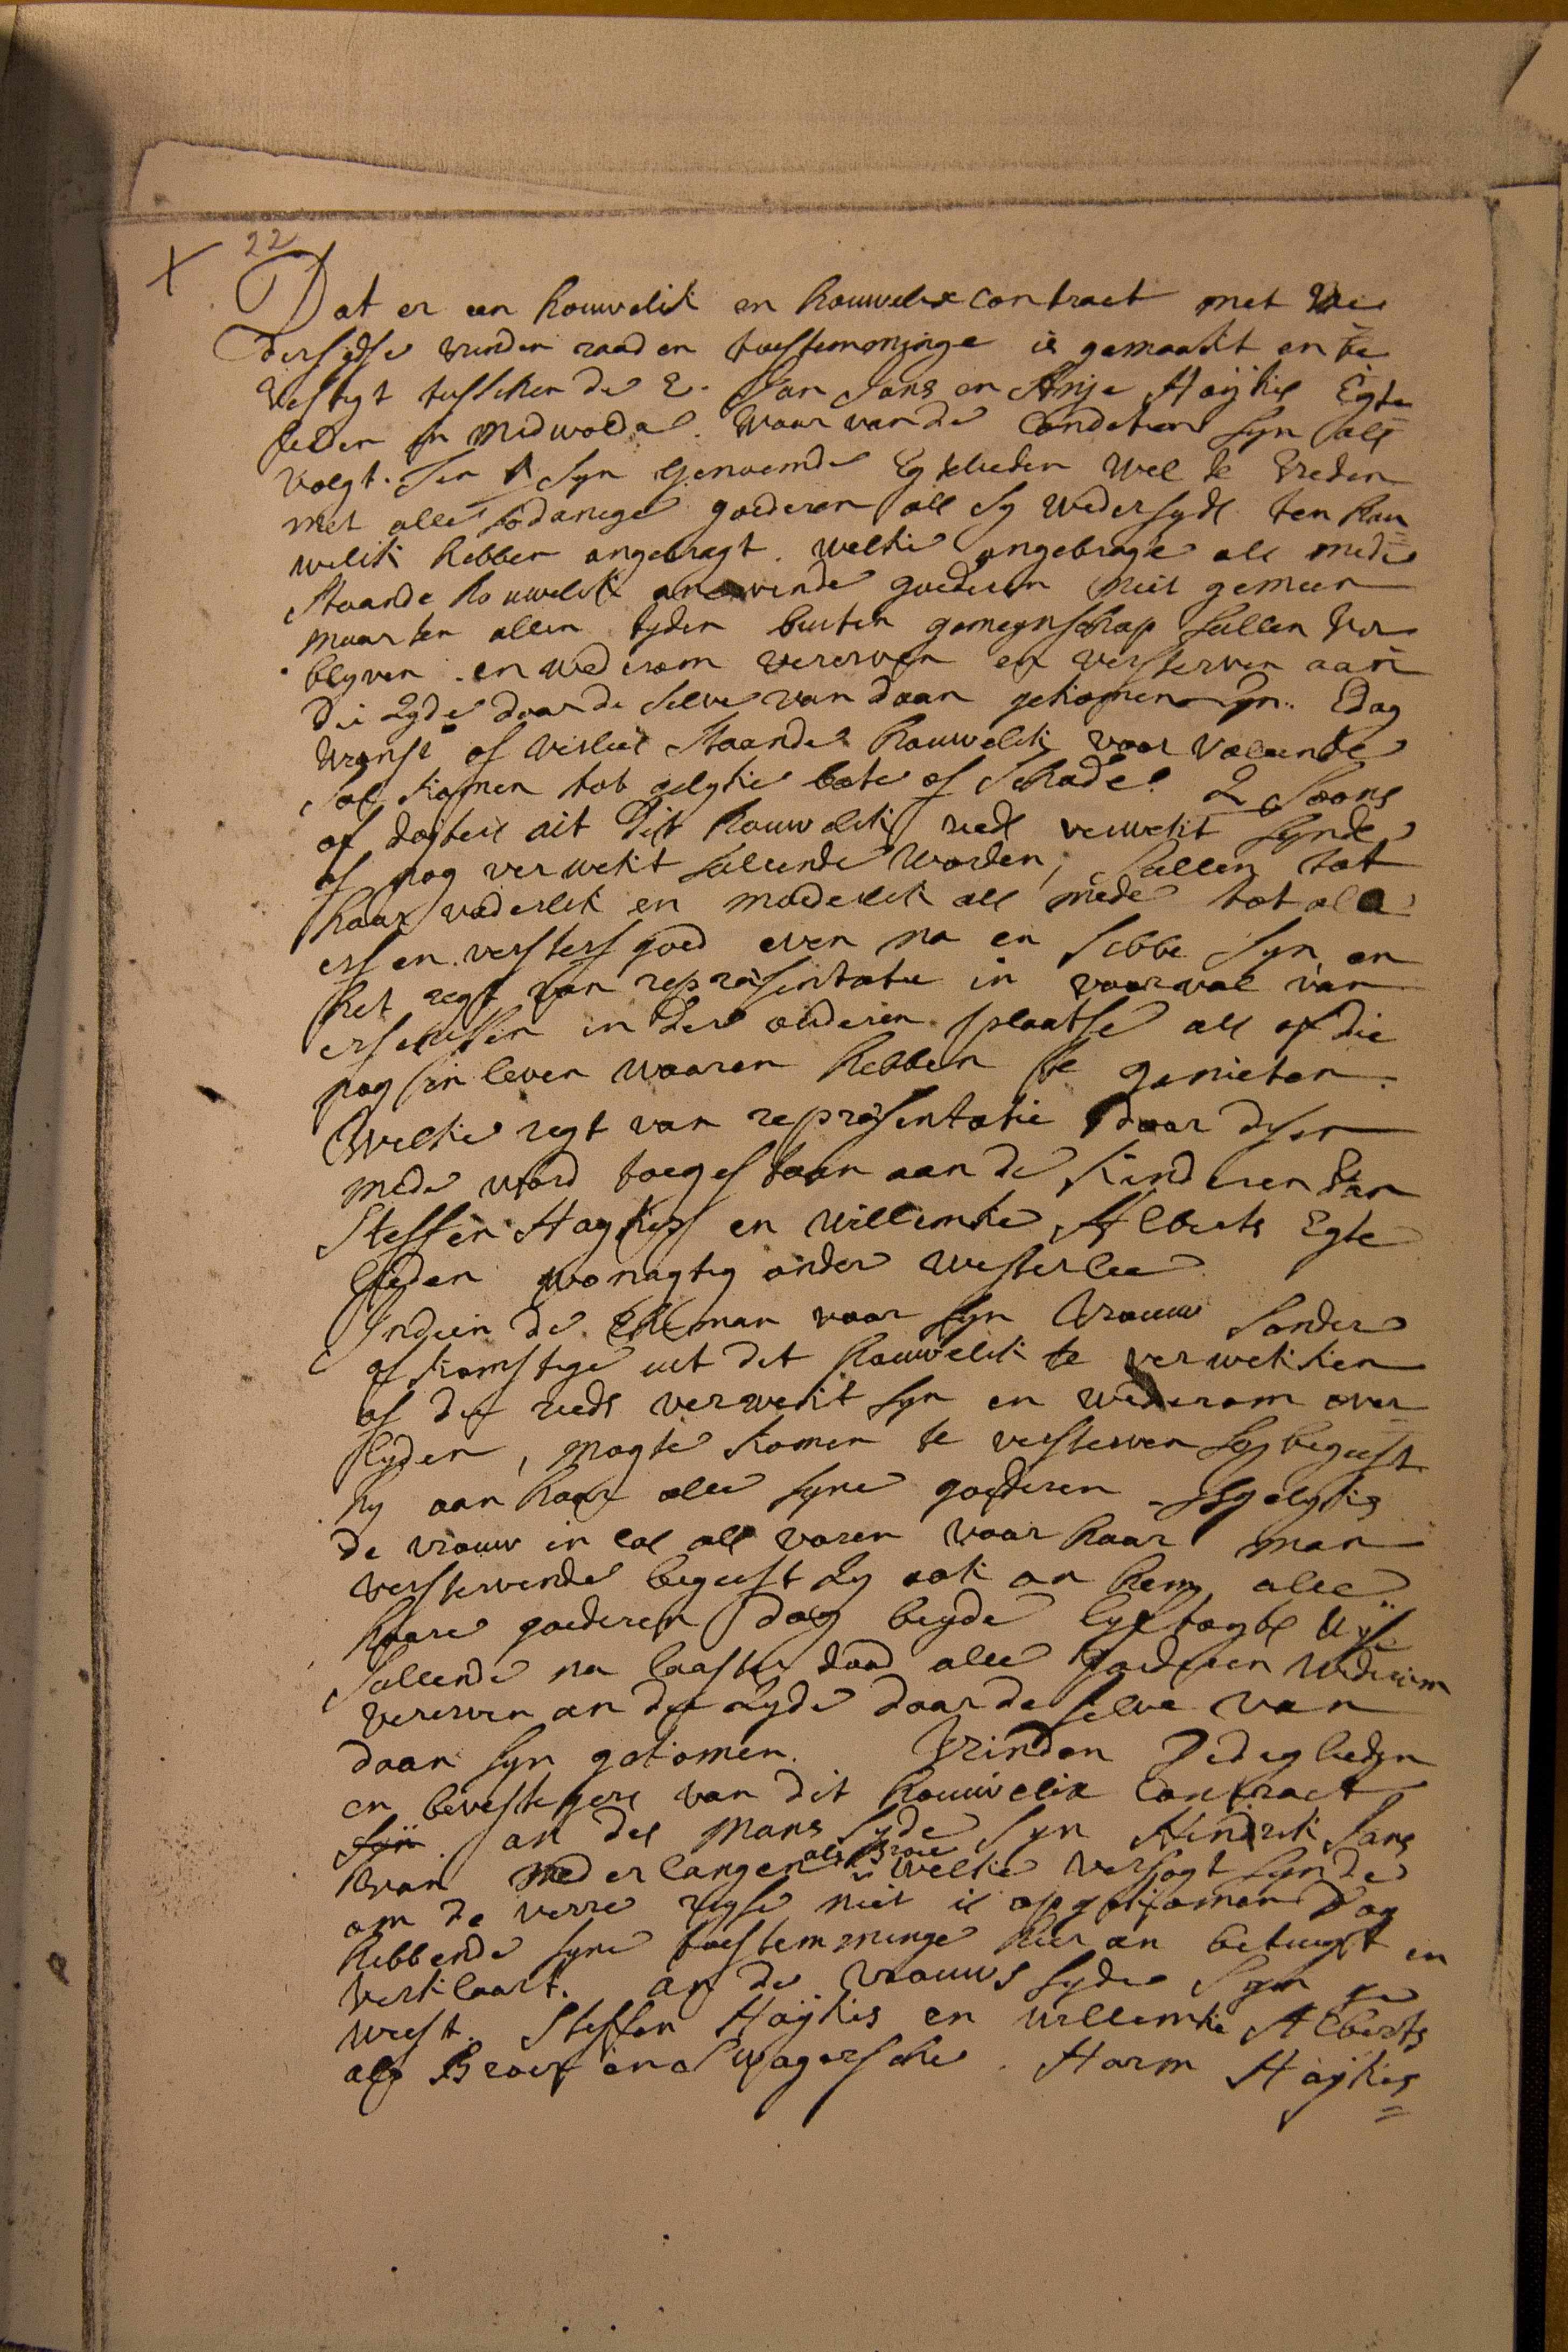 X 22
Dat er een houwelik en houwelix contract met We
dersydse vrinden raad en toestemminge is gemaakt en be
vestigt tusschen de E. Jan Jans en Anje Haÿkes Egte
lieden in Midwolda. Waar van de Conditien syn als
volgt. Ten 1 syn genoemde Egtelieden wel te vreden
met alle sodanige goederen als sy wedersyds ten hou
welik hebben angebragt. welke angebragte als mede
staande houwelik anervende goederen niet gemeen
maar ten allen tyden buiten gemeynschap sullen ver
blyven. en wederom vererven en versterven aan
die zyde daar de selve van daan gekomen syn. Edog
winst of verlies staande houwelik voor vallende
sal komen tot gelyke bate of schade. 2 Soons
of dogters uit dit houwelik reeds verwekt synde
of nog verwekt sullende worden, sullen tot
haar vaderlik en moederlik als mede tot alle
erf en versterf goed even na en sibbe syn en
het regt van repræsentatie in voorval van
erfenissen in der ouderen plaatse als of die
nog in leven waaren hebben te genieten.
Welke regt van repræsentatie daar desen
mede word toegestaan aan de kinderen van
Steffen Haykes en Willemke Alberts Egte
lieden wonagtig onder Westerlee
Indien de Eheman voor syn Vrouw sonder
afkomstige uit dit houwelik te verwekken
of die reeds verwekt syn en wederom over
lyden, mogte komen te versterven so begeeft
hy aan haar alle syne goederen. Gelykes
de vrouw in cas als voren voor haar man
verstervende begeeft zy ook an hem alle
haare goederen dog beyde lyftogts wyse
sullende na laaster dood alle goederen wederom
vererven an die zyde daar de selve van
daan syn gekomen. Vrinden Dedigslieden
en bevestigers van dit houwelix contract
syn an des mans syde syn Hindrik Jans
van Nederlangen als Broer welke versogt synde
om de verre reyse niet is opgekomen Dog
hebbende syne toestemminge hier an betuigt en
verklaart. an de vrouws syde syn ge
weest. Steffen Haÿkes en willemke Alberts
als Broer en Swagersche. Harm Haÿkes